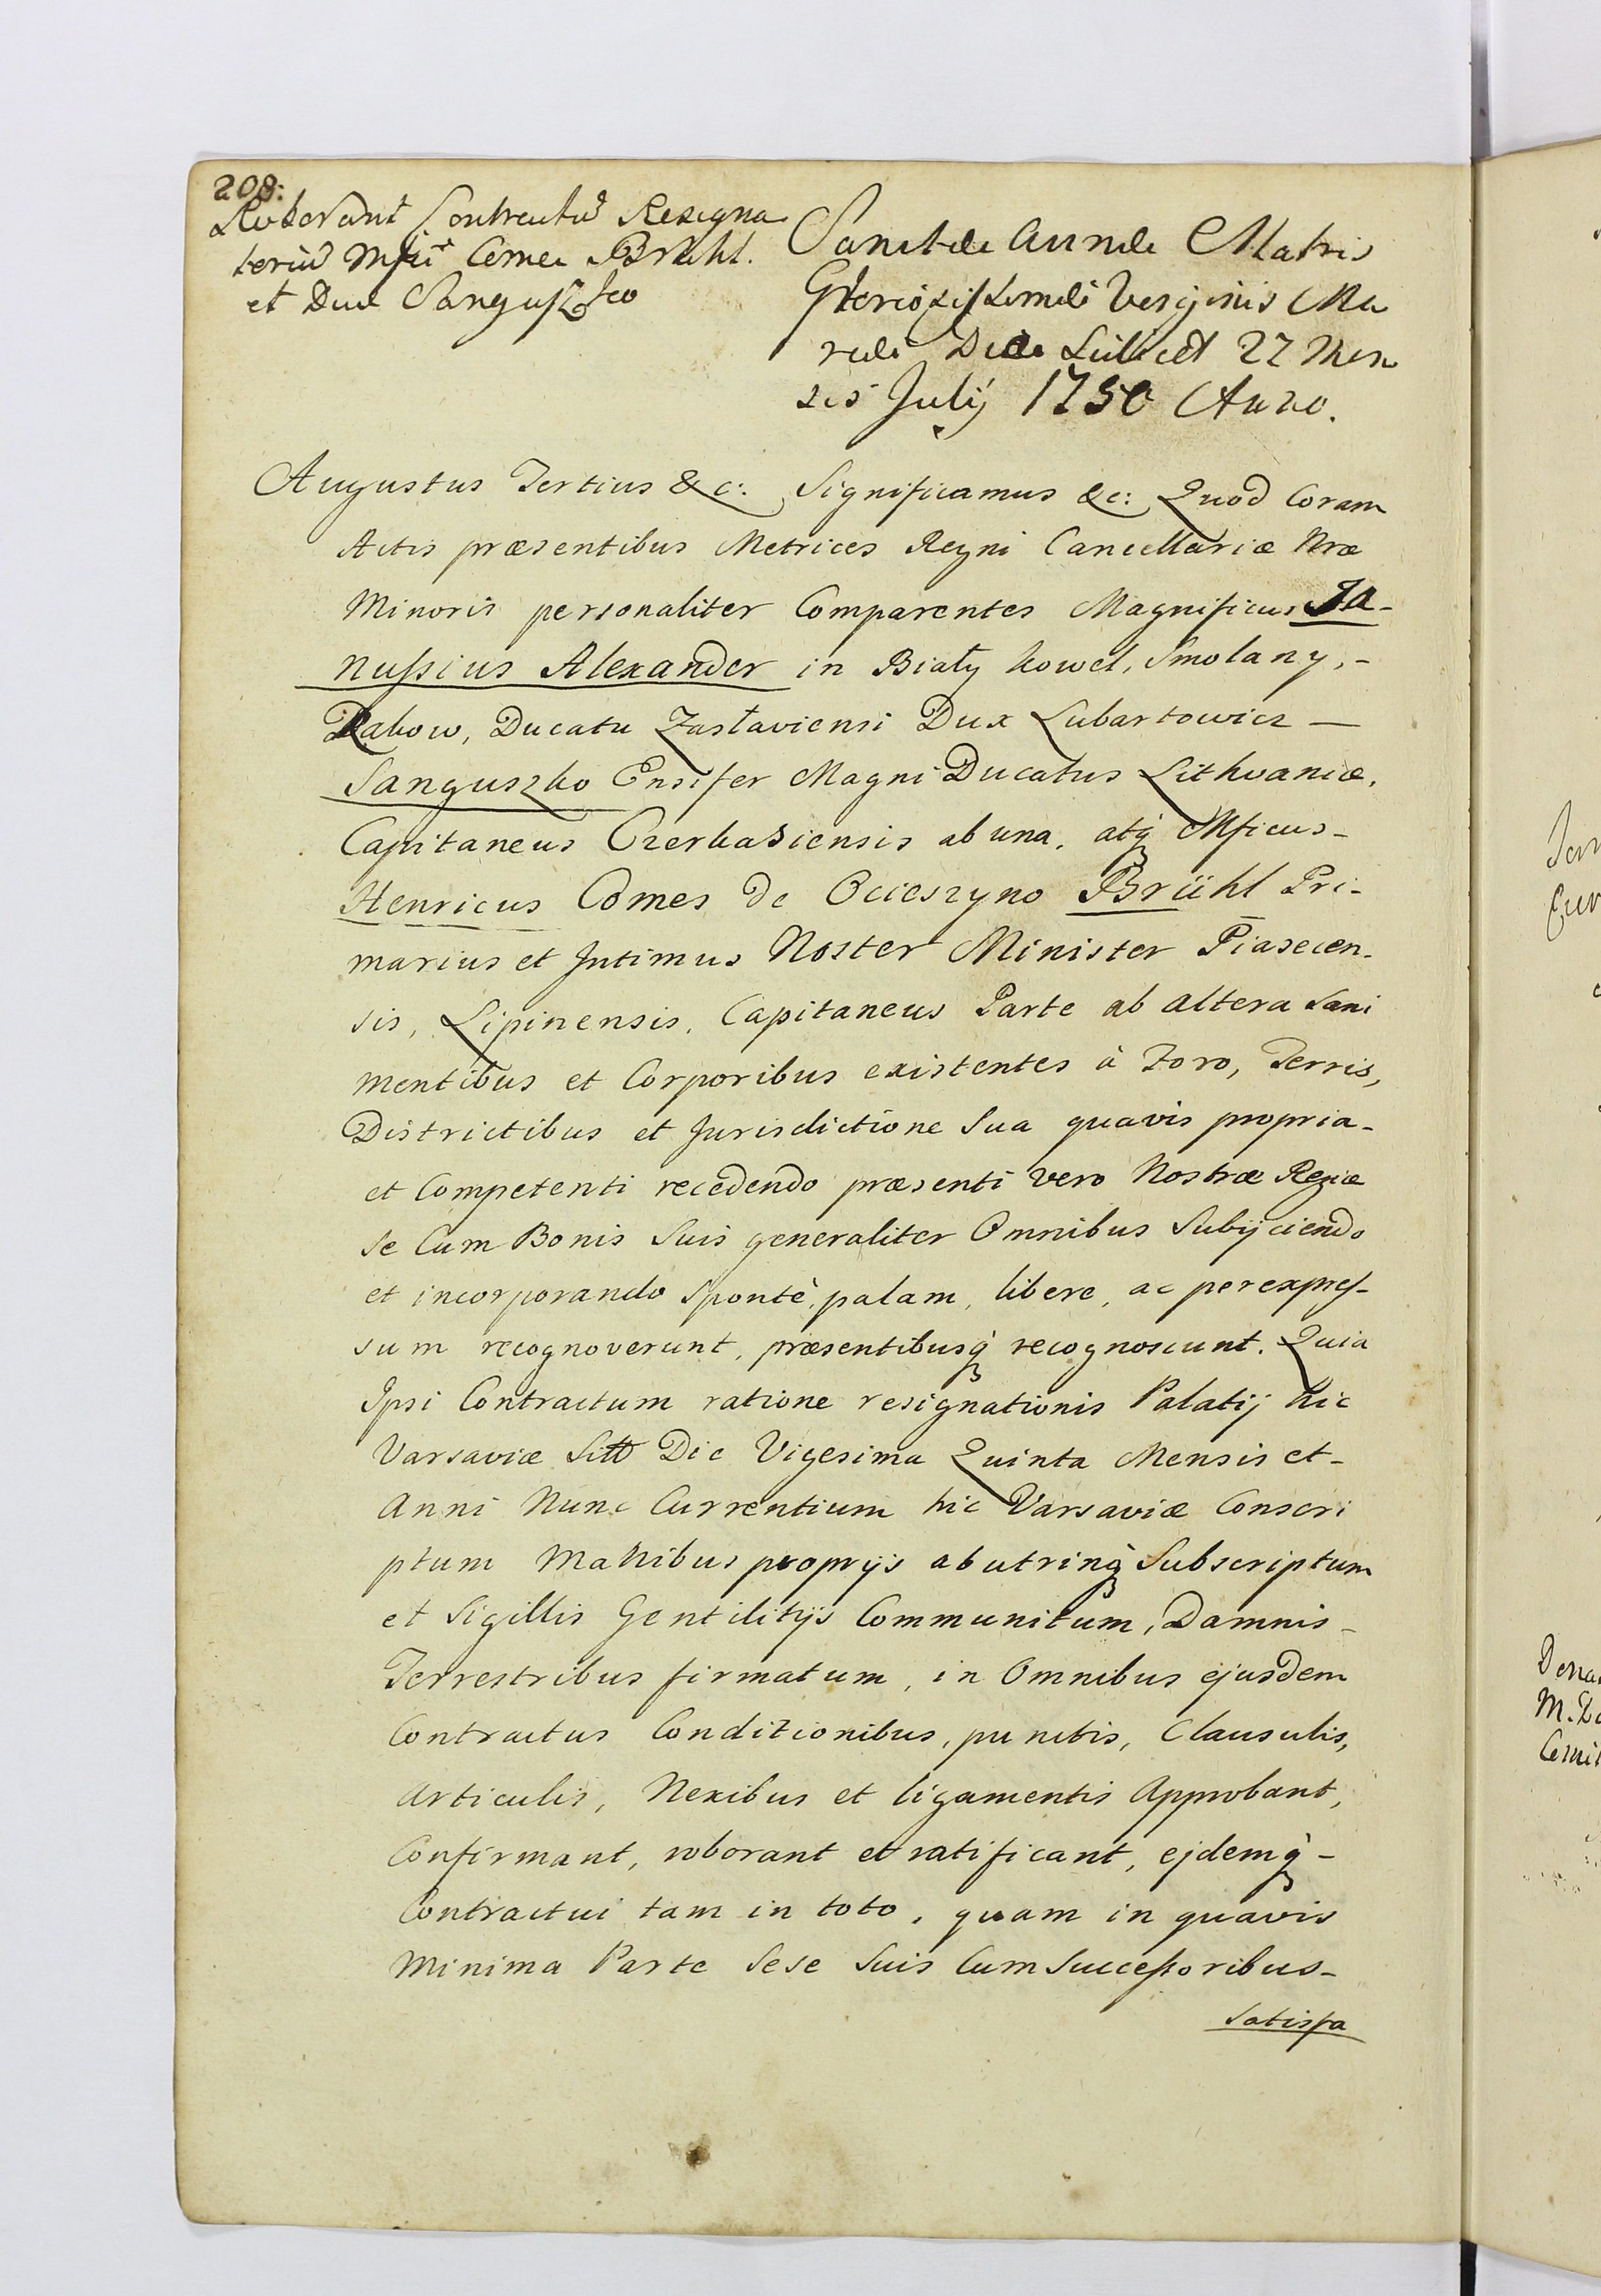 208:
Roborant Contractus Resigna
torius Mfici Comes Brühl.
et Dux Sanguszko
Sanctæ Annæ Matris
Gloriosissimæ Virginis Ma
riæ Die Scilicet 27 Men
sis Julij 1750 Anno.
Augustus Tertius &c: Significamus &c: Quod Coram
Actis præsentibus Metrices Regni Cancellariæ Nræ
Minoris personaliter Comparentes Magnificus Ja-
nussius Alexander in Biały kowel, Smolany, -
Rakow, Ducatu Zasłaviensi Dux Lubartowicz —
Sanguszko Ensifer Magni Ducatus Lithvaniæ,
Capitaneus Czerkasiensis ab una, atq̀ Mficus -
Henricus Comes de Ocieszyno Brühl Pri-
marius et Intimus Noster Minister Piasecen-
sis, Lipinensis, Capitaneus Parte ab altera Sani
mentibus et Corporibus existentes à Foro, Terris,
Districtibus et Jurisdictione Sua quavis propria -
et Competenti recedendo præsenti vero Nostræ Regiæ
se Cum Bonis Suis generaliter Omnibus Subijciendo
et incorporando Spontè, palam, libere, ac per expres-
sum recognoverunt, præsentibusq̀ recognoscunt. Quia
Ipsi Contractum ratione resignationis Palatij hic
Varsaviæ Siti Die Vigesima Quinta Mensis et -
Anni Nunc Currentium hic Varsaviæ Conscri
ptum Manibus proprijs ab utrinq̀ Subscriptum
et Sigillis Gentilitijs Communitum, Damnis -
Terrestribus firmatum, in Omnibus ejusdem
Contractus Conditionibus, punctis, Clausulis,
Articulis, Nexibus et ligamentis Approbant,
Confirmant, roborant et ratificant, ejdemq̀ -
Contractui tam in toto, quam in quavis
Minima Parte Sese Suis Cum Successoribus -
Satisfa